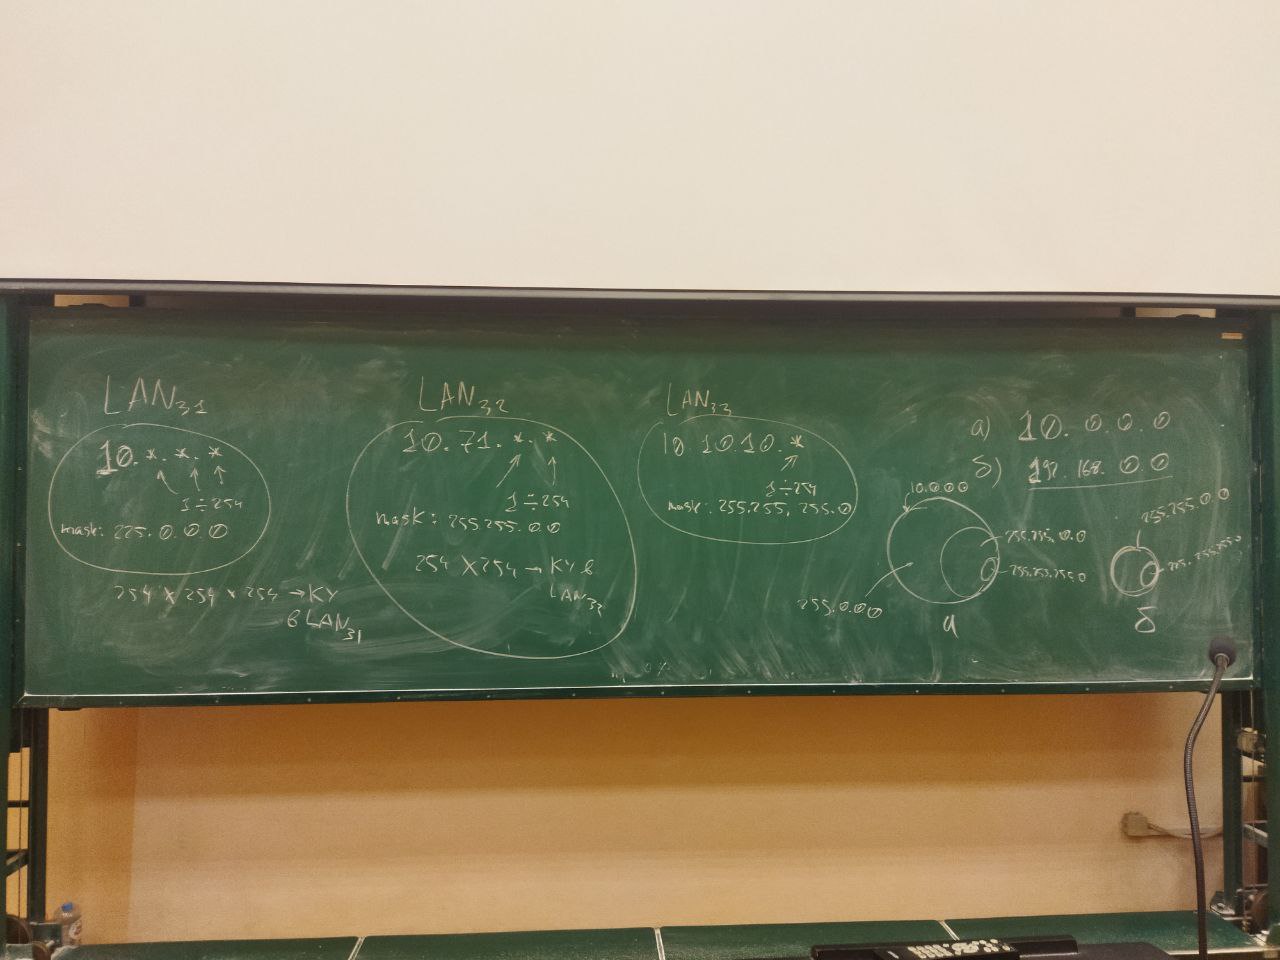 LAN31
10.*.*.*
1÷254
mask: 225.0.0.0
254 x 254 x 254 → КУ
в LAN31
LAN32
10.71.*.*
1÷254
mask: 255.255.0.0
254 x 254 → КУ в
LAN32
LAN33
10.10.10.*
1÷254
mask: 255.255.255.0
а) 10.0.0.0
б) 192.168.0.0
10.0.0.0
255.255.0.0
255.255.255.0
255.0.0.0
а
255.255.0.0
255.255.255.0
б